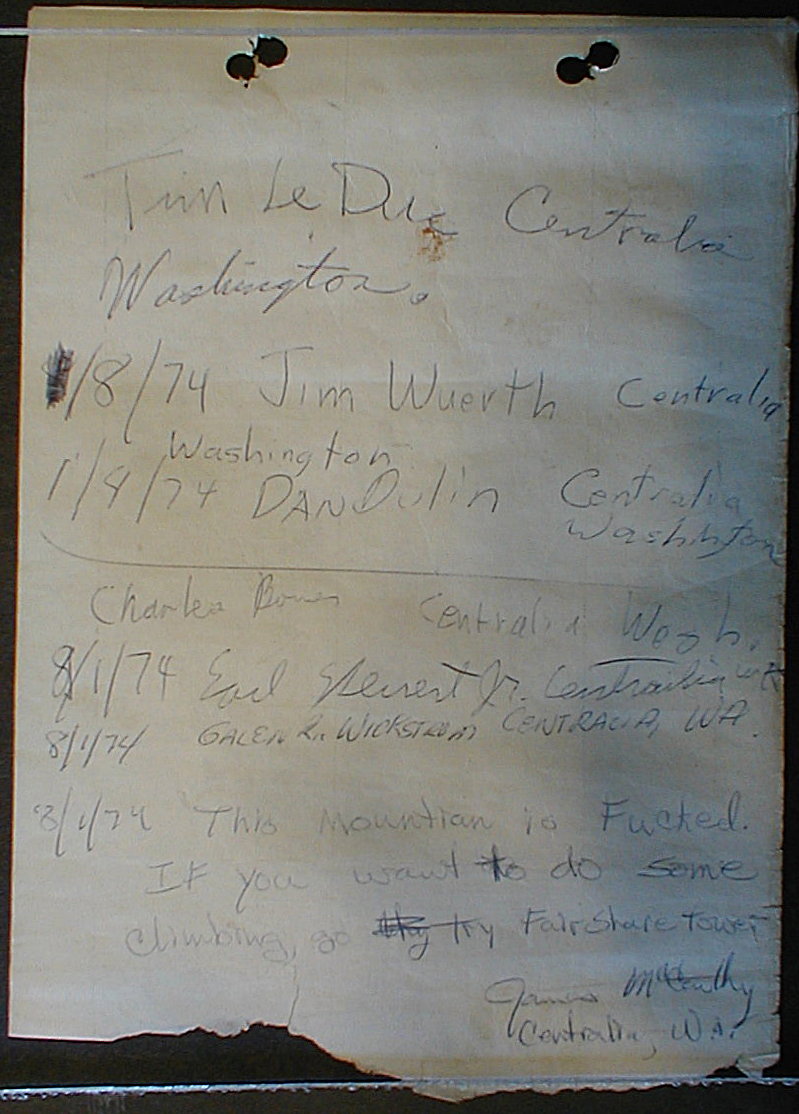 Tim Le Duc Centralia
Washington.
/8/74 Jim Wuerth Centralia
Washington
1/8/74 DAN Dulin Centralia
Washington
Charles Centralia Wash.
8/1/74 Earl Jr. Centralia
8/1/74 GALEN R. WICKSTROM CENTRALIA, WA.
8/1/74 This Mountian is Fucked.
If you want to do some
climbing, go try Fairshare Tower
James McCarthy
Centralia, WA.